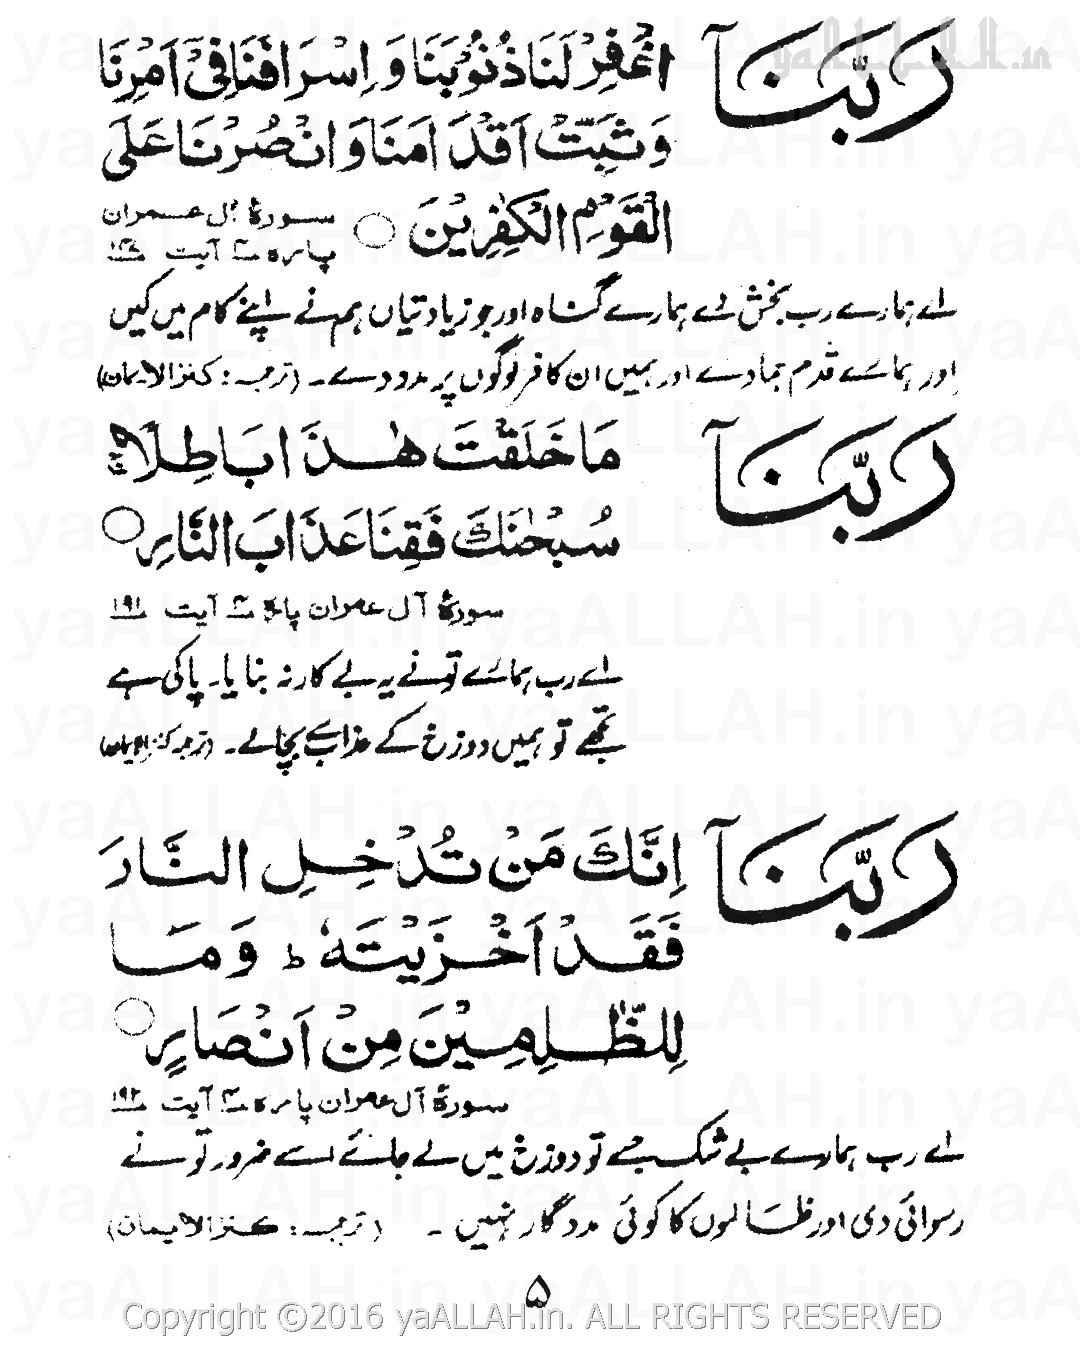 yaALLAH.in
رَبَّنَآ اغْفِرْ لَنَا ذُنُوْبَنَا وَ اِسْرَافَنَا فِیْٓ اَمْرِنَا
وَ ثَبِّتْ اَقْدَامَنَا وَ انْصُرْنَا عَلَی
الْقَوْمِ الْکٰفِرِیْنَ
سورۂ آل عمران
پارہ ۴ آیت
اے ہمارے رب بخش دے ہمارے گناہ اور جو زیادتیاں ہم نے اپنے کام میں کیں
اور ہمارے قدم جمادے اور ہمیں ان کافر لوگوں پر مدد دے۔ (ترجمہ: کنزالایمان)
رَبَّنَآ مَا خَلَقْتَ هٰذَا بَاطِلًا ج
سُبْحٰنَكَ فَقِنَا عَذَابَ النَّارِ
سورۂ آل عمران پارہ ۴ آیت ۱۹۱
اے رب ہمارے تو نے یہ بے کار نہ بنایا۔ پاکی ہے
تجھے تو ہمیں دوزخ کے عذاب سے بچالے۔ (ترجمہ کنزالایمان)
رَبَّنَآ اِنَّكَ مَنْ تُدْخِلِ النَّارَ
فَقَدْ اَخْزَیْتَهٗ ط وَ مَا
لِلظّٰلِمِیْنَ مِنْ اَنْصَارٍ
سورۂ آل عمران پارہ ۴ آیت ۱۹۲
اے رب ہمارے بے شک جسے تو دوزخ میں لے جائے اسے ضرور تو نے
رسوائی دی اور ظالموں کا کوئی مددگار نہیں۔ (ترجمہ: کنزالایمان)
۵
Copyright ©2016 yaALLAH.in. ALL RIGHTS RESERVED